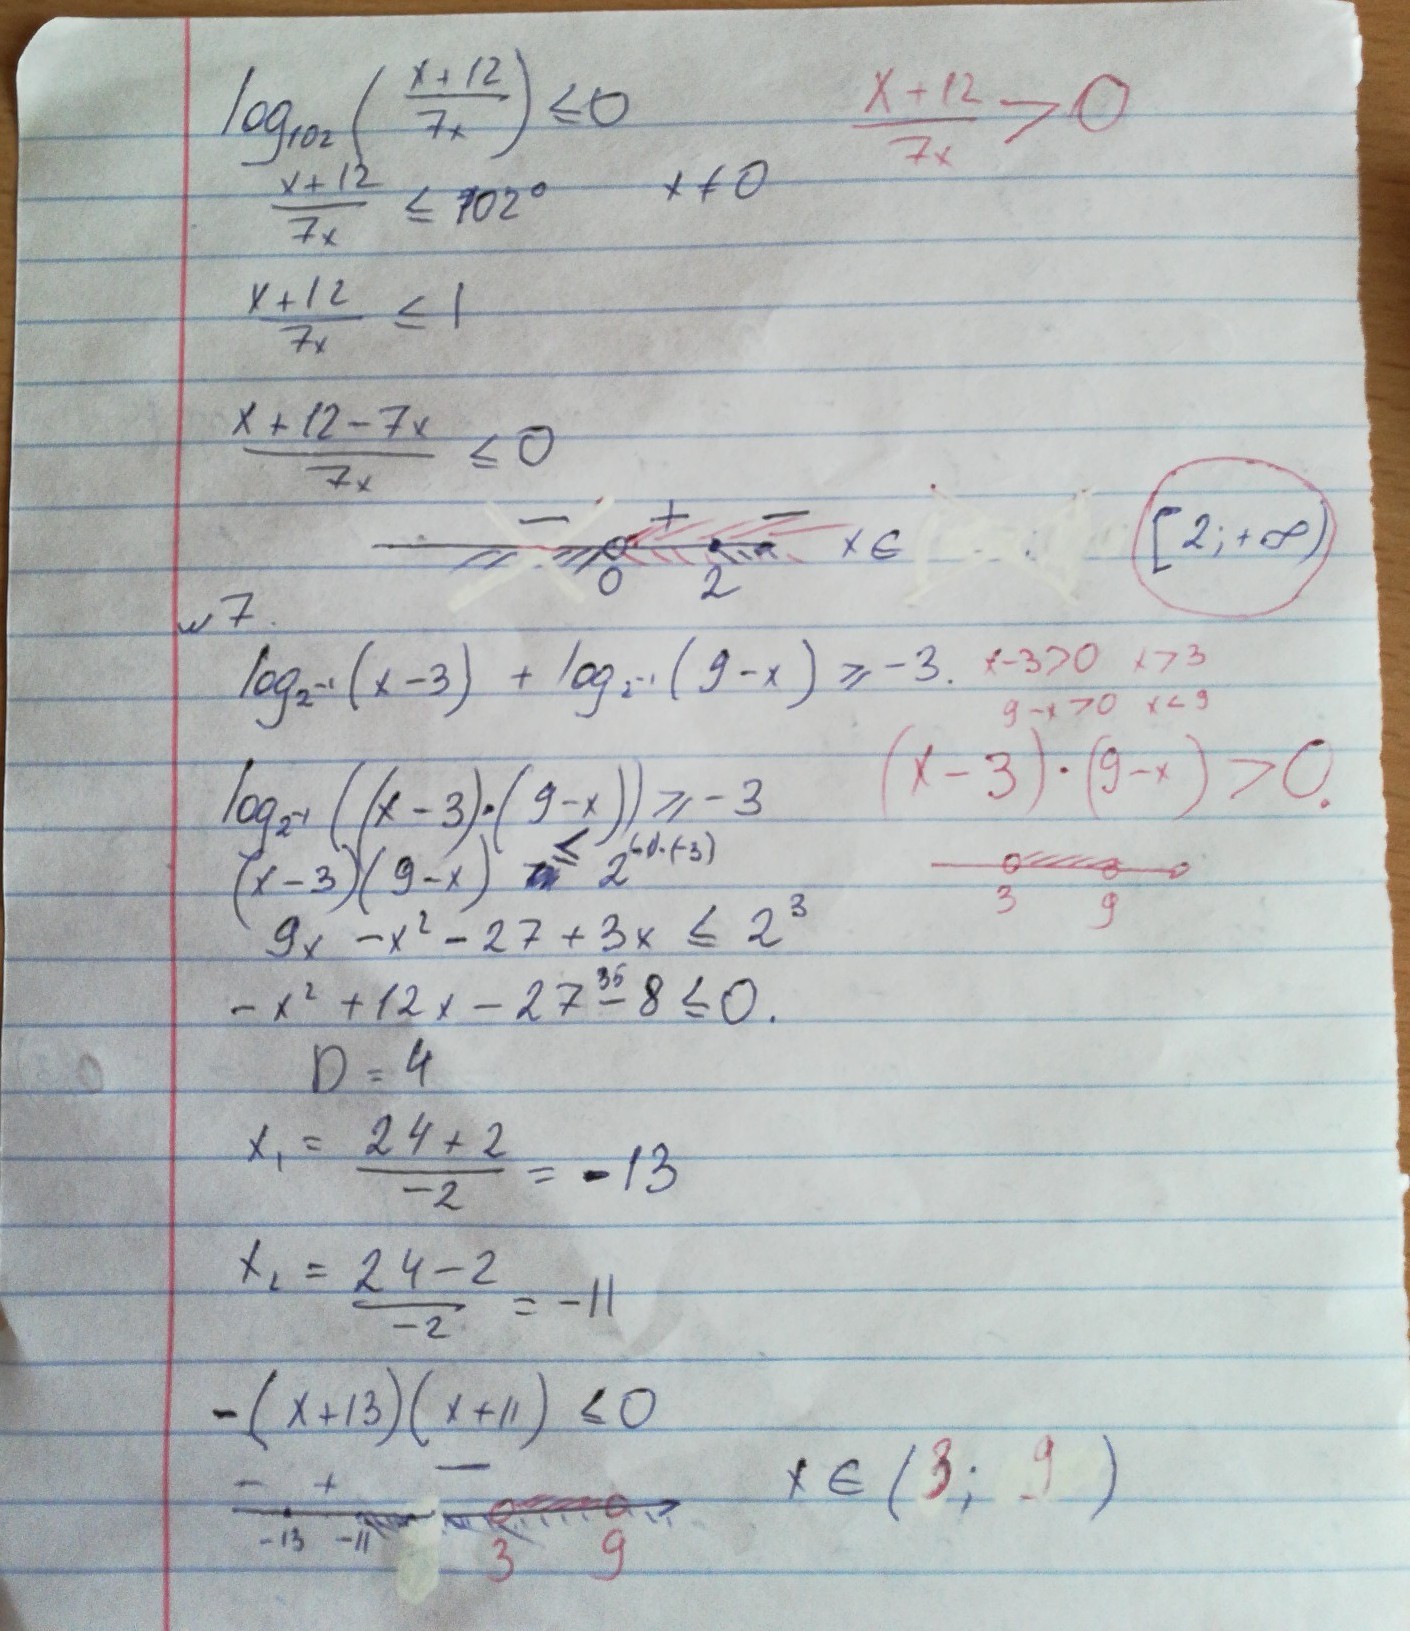 log₁₀₂((x+12)/(7x)) ≤ 0    (x+12)/(7x) > 0
(x+12)/(7x) ≤ 102⁰    x ≠ 0
(x+12)/(7x) ≤ 1
(x+12-7x)/(7x) ≤ 0
- + -
0 2 x ∈ [2; +∞)
7.
log₂₋₁(x-3) + log₂₋₁(9-x) ≥ -3. x-3>0 x>3
9-x>0 x<9
log₂₋₁((x-3)·(9-x)) ≥ -3    (x-3)·(9-x) > 0.
(x-3)(9-x) ≤ 2^((-1)·(-3))
3 9
9x - x² - 27 + 3x ≤ 2³
35
-x² + 12x - 27 - 8 ≤ 0.
D = 4
x₁ = (24+2)/(-2) = -13
x₂ = (24-2)/(-2) = -11
-(x+13)(x+11) ≤ 0
- + -
-13 -11 3 9 x ∈ (3; 9)